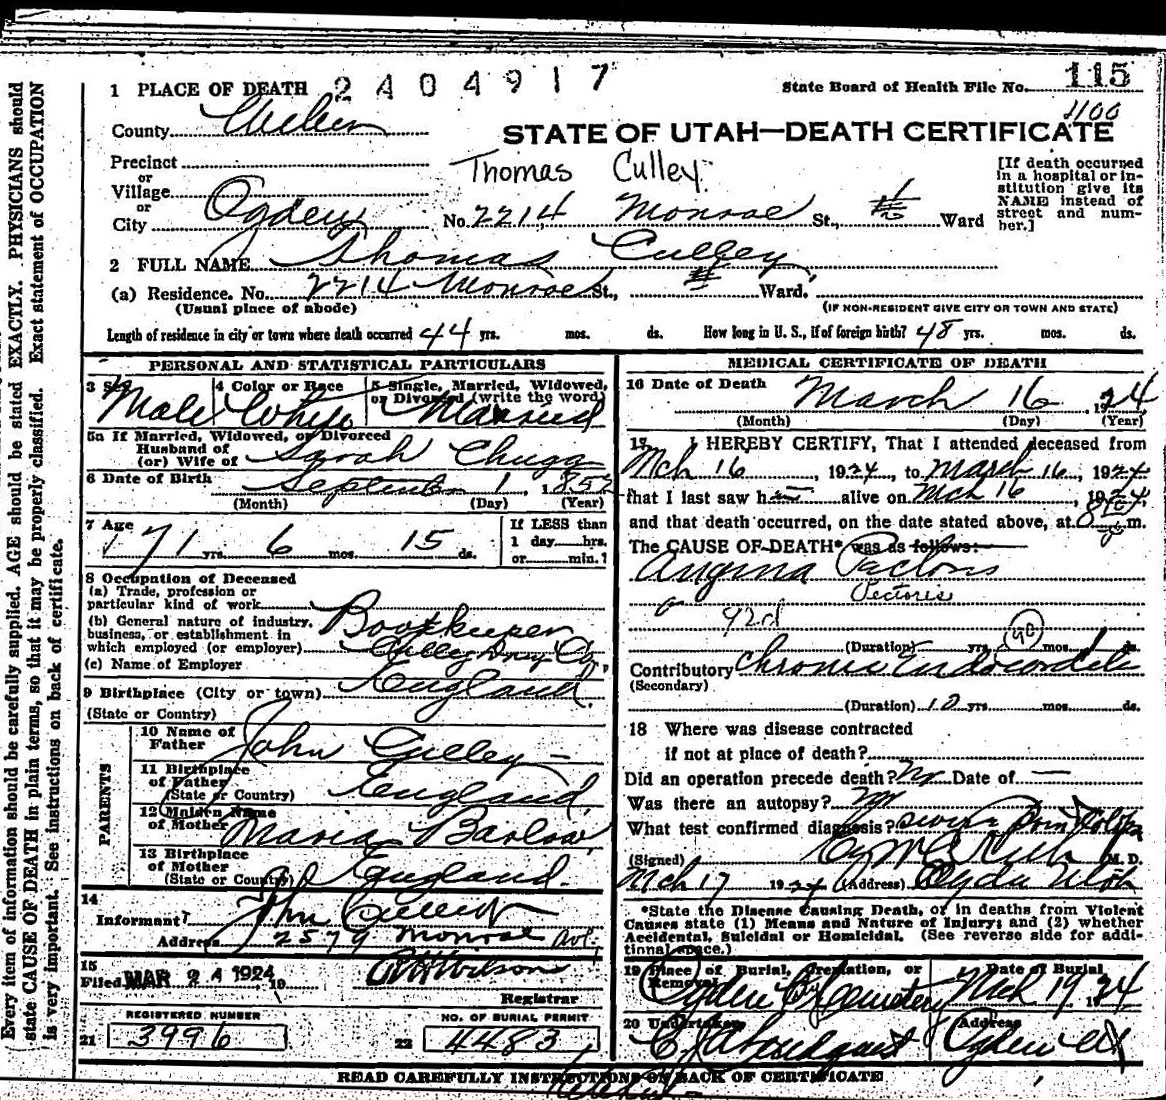 Every item of information should be carefully supplied. AGE should be stated EXACTLY. PHYSICIANS should
state CAUSE OF DEATH in plain terms, so that it may be properly classified. Exact statement of OCCUPATION
is very important. See instructions on back of certificate.
1 PLACE OF DEATH 2404917
State Board of Health File No. 115
1100
County Weber
STATE OF UTAH—DEATH CERTIFICATE
Precinct
or
Village
or
City Ogden No. 2214 Monroe St., Ward
Thomas Culley
[If death occurred
in a hospital or in-
stitution give its
NAME instead of
street and num-
ber.]
2 FULL NAME Thomas Culley
(a) Residence. No. 2214 Monroe St., Ward.
(Usual place of abode) (IF NON-RESIDENT GIVE CITY OR TOWN AND STATE)
Length of residence in city or town where death occurred 44 yrs. mos. ds. How long in U. S., if of foreign birth? 48 yrs. mos. ds.
PERSONAL AND STATISTICAL PARTICULARS
3 Sex Male
4 Color or Race White
5 Single, Married, Widowed, or Divorced (write the word) Married
5a If Married, Widowed, or Divorced
Husband of
(or) Wife of Sarah Chugg
6 Date of Birth September 1, 1852
(Month) (Day) (Year)
7 Age 71 yrs. 6 mos. 15 ds.
If LESS than
1 day hrs.
or min.?
8 Occupation of Deceased
(a) Trade, profession or
particular kind of work Bookkeeper
(b) General nature of industry,
business, or establishment in
which employed (or employer) Culley Drug Co.
(c) Name of Employer
9 Birthplace (City or town) England
(State or Country)
PARENTS
10 Name of
Father John Culley
11 Birthplace
of Father England
(State or Country)
12 Maiden Name
of Mother Maria Barlow
13 Birthplace
of Mother England
(State or Country)
14
Informant Jno Culley
Address 2579 Monroe Ave.
15
Filed MAR 24 1924, 19 Wilson
Registrar
REGISTERED NUMBER
21 3996
NO. OF BURIAL PERMIT
22 4483
MEDICAL CERTIFICATE OF DEATH
16 Date of Death March 16, 1924
(Month) (Day) (Year)
17. I HEREBY CERTIFY, That I attended deceased from
Mch 16, 1924, to March 16, 1924
that I last saw h alive on Mch 16, 1924,
and that death occurred, on the date stated above, at 8 m.
The CAUSE OF DEATH* was as follows:
Angina Pectoris
Pectoris
92d
90
(Duration) yrs. mos. ds.
Contributory Chronic Endocarditis
(Secondary)
(Duration) 10 yrs. mos. ds.
18 Where was disease contracted
if not at place of death?
Did an operation precede death? No Date of —
Was there an autopsy? no
What test confirmed diagnosis? severe pain
(Signed) Rich M. D.
Mch 17 1924 (Address) Ogden Utah
*State the Disease Causing Death, or in deaths from Violent
Causes state (1) Means and Nature of Injury; and (2) whether
Accidental, Suicidal or Homicidal. (See reverse side for addi-
tional space.)
19 Place of Burial, Cremation, or
Removal Ogden City Cemetery
Date of Burial Mch 19 1924
20 Undertaker
Address Ogden Ut
READ CAREFULLY INSTRUCTIONS ON BACK OF CERTIFICATE